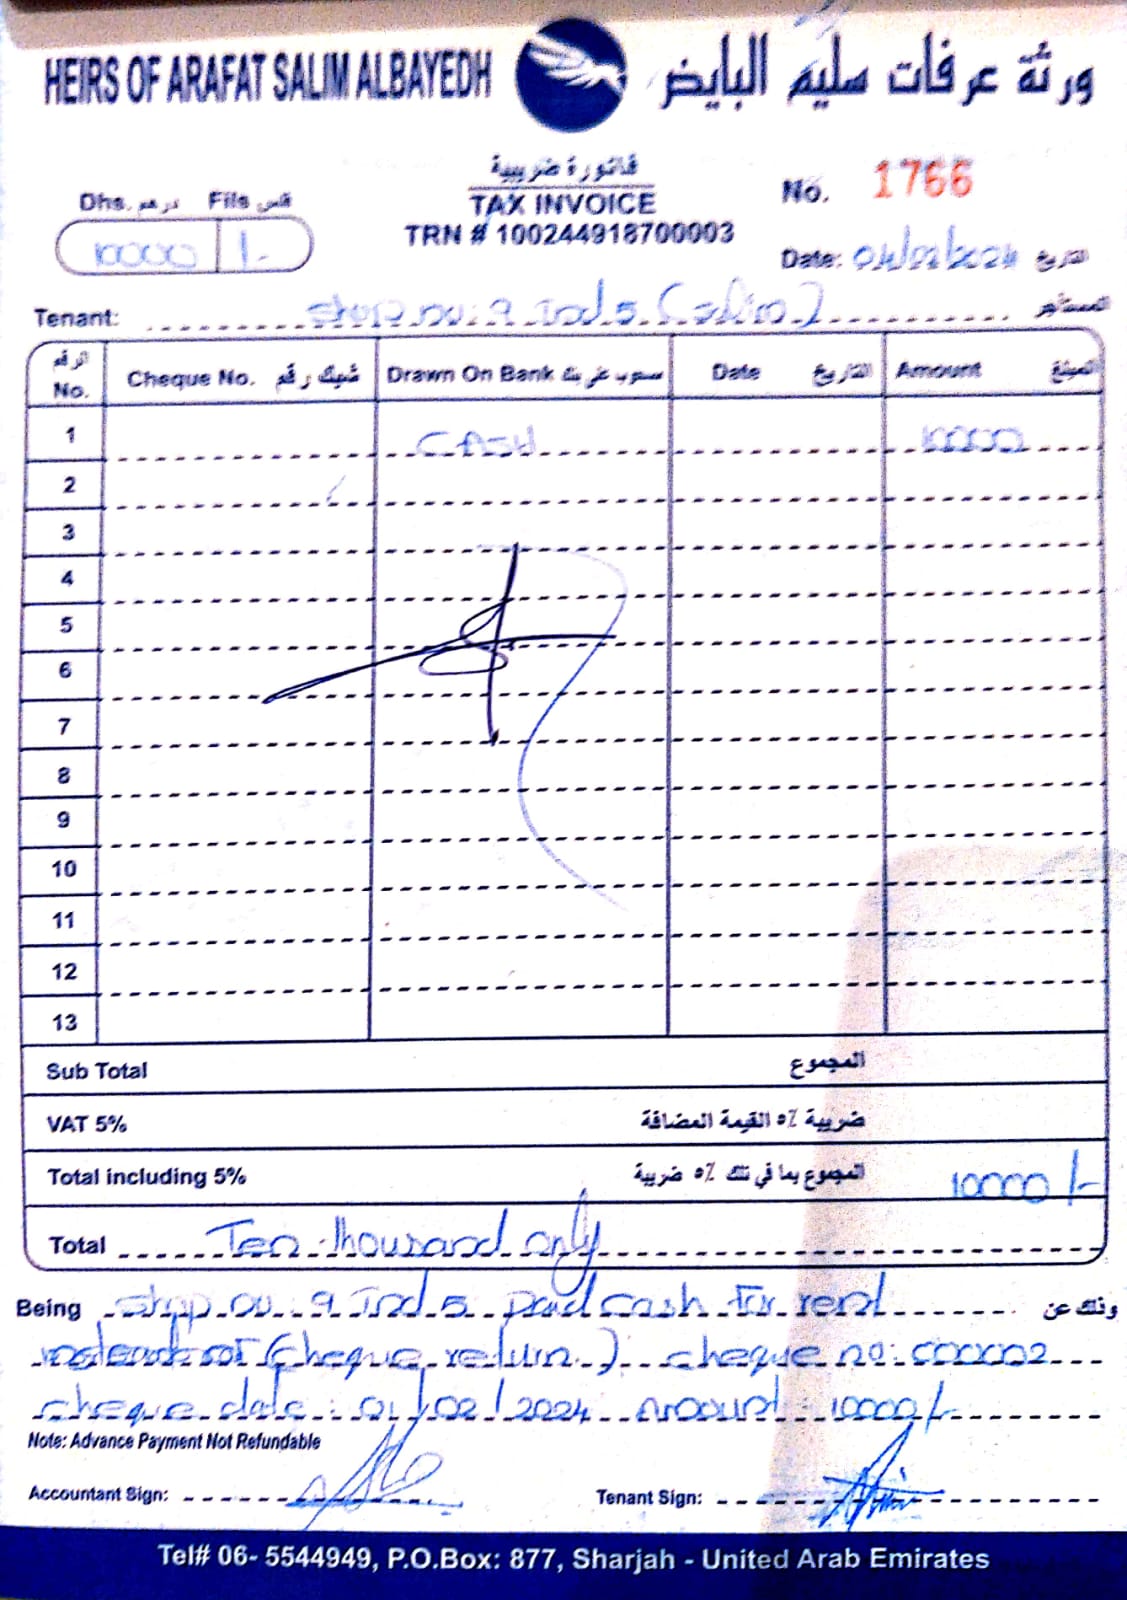 HEIRS OF ARAFAT SALIM ALBAYEDH
ورثة عرفات سليم البايض
فاتورة ضريبية
TAX INVOICE
TRN # 100244918700003
No. 1766
Dhs. درهم Fils فلس
10000 /-
Date: /02/2024 التاريخ
Tenant: Shop no: 9 Ind 5 المستأجر
الرقم No. Cheque No. شيك رقم Drawn On Bank مسحوب على بنك Date التاريخ Amount المبلغ
1 CASH 10000
2
3
4
5
6
7
8
9
10
11
12
13
Sub Total المجموع
VAT 5% ضريبة ٥٪ القيمة المضافة
Total including 5% المجموع بما في تلك ٥٪ ضريبة 10000/-
Total Ten thousand only
Being Shop no: 9 Ind 5 paid cash for rent وذلك عن
instead of (cheque return) cheque no: 000002
cheque date: 01/02/2024 Amount: 10000/-
Note: Advance Payment Not Refundable
Accountant Sign:
Tenant Sign:
Tel# 06- 5544949, P.O.Box: 877, Sharjah - United Arab Emirates